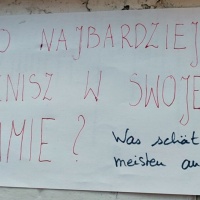 O NAJBARDZIEJ
NISZ W SWOJE
MIE ?
Was schät
meisten an